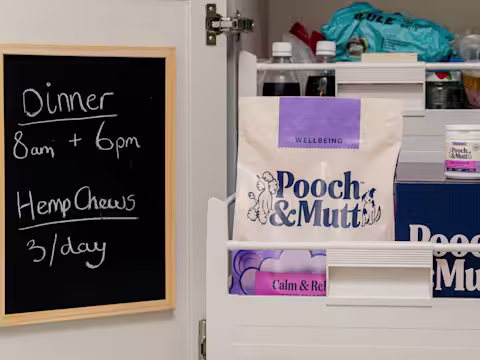 Dinner
8am + 6pm
Hemp Chews
3/day
WELLBEING
Pooch
&Mutt
Calm & Rel
Pooch
& Mu